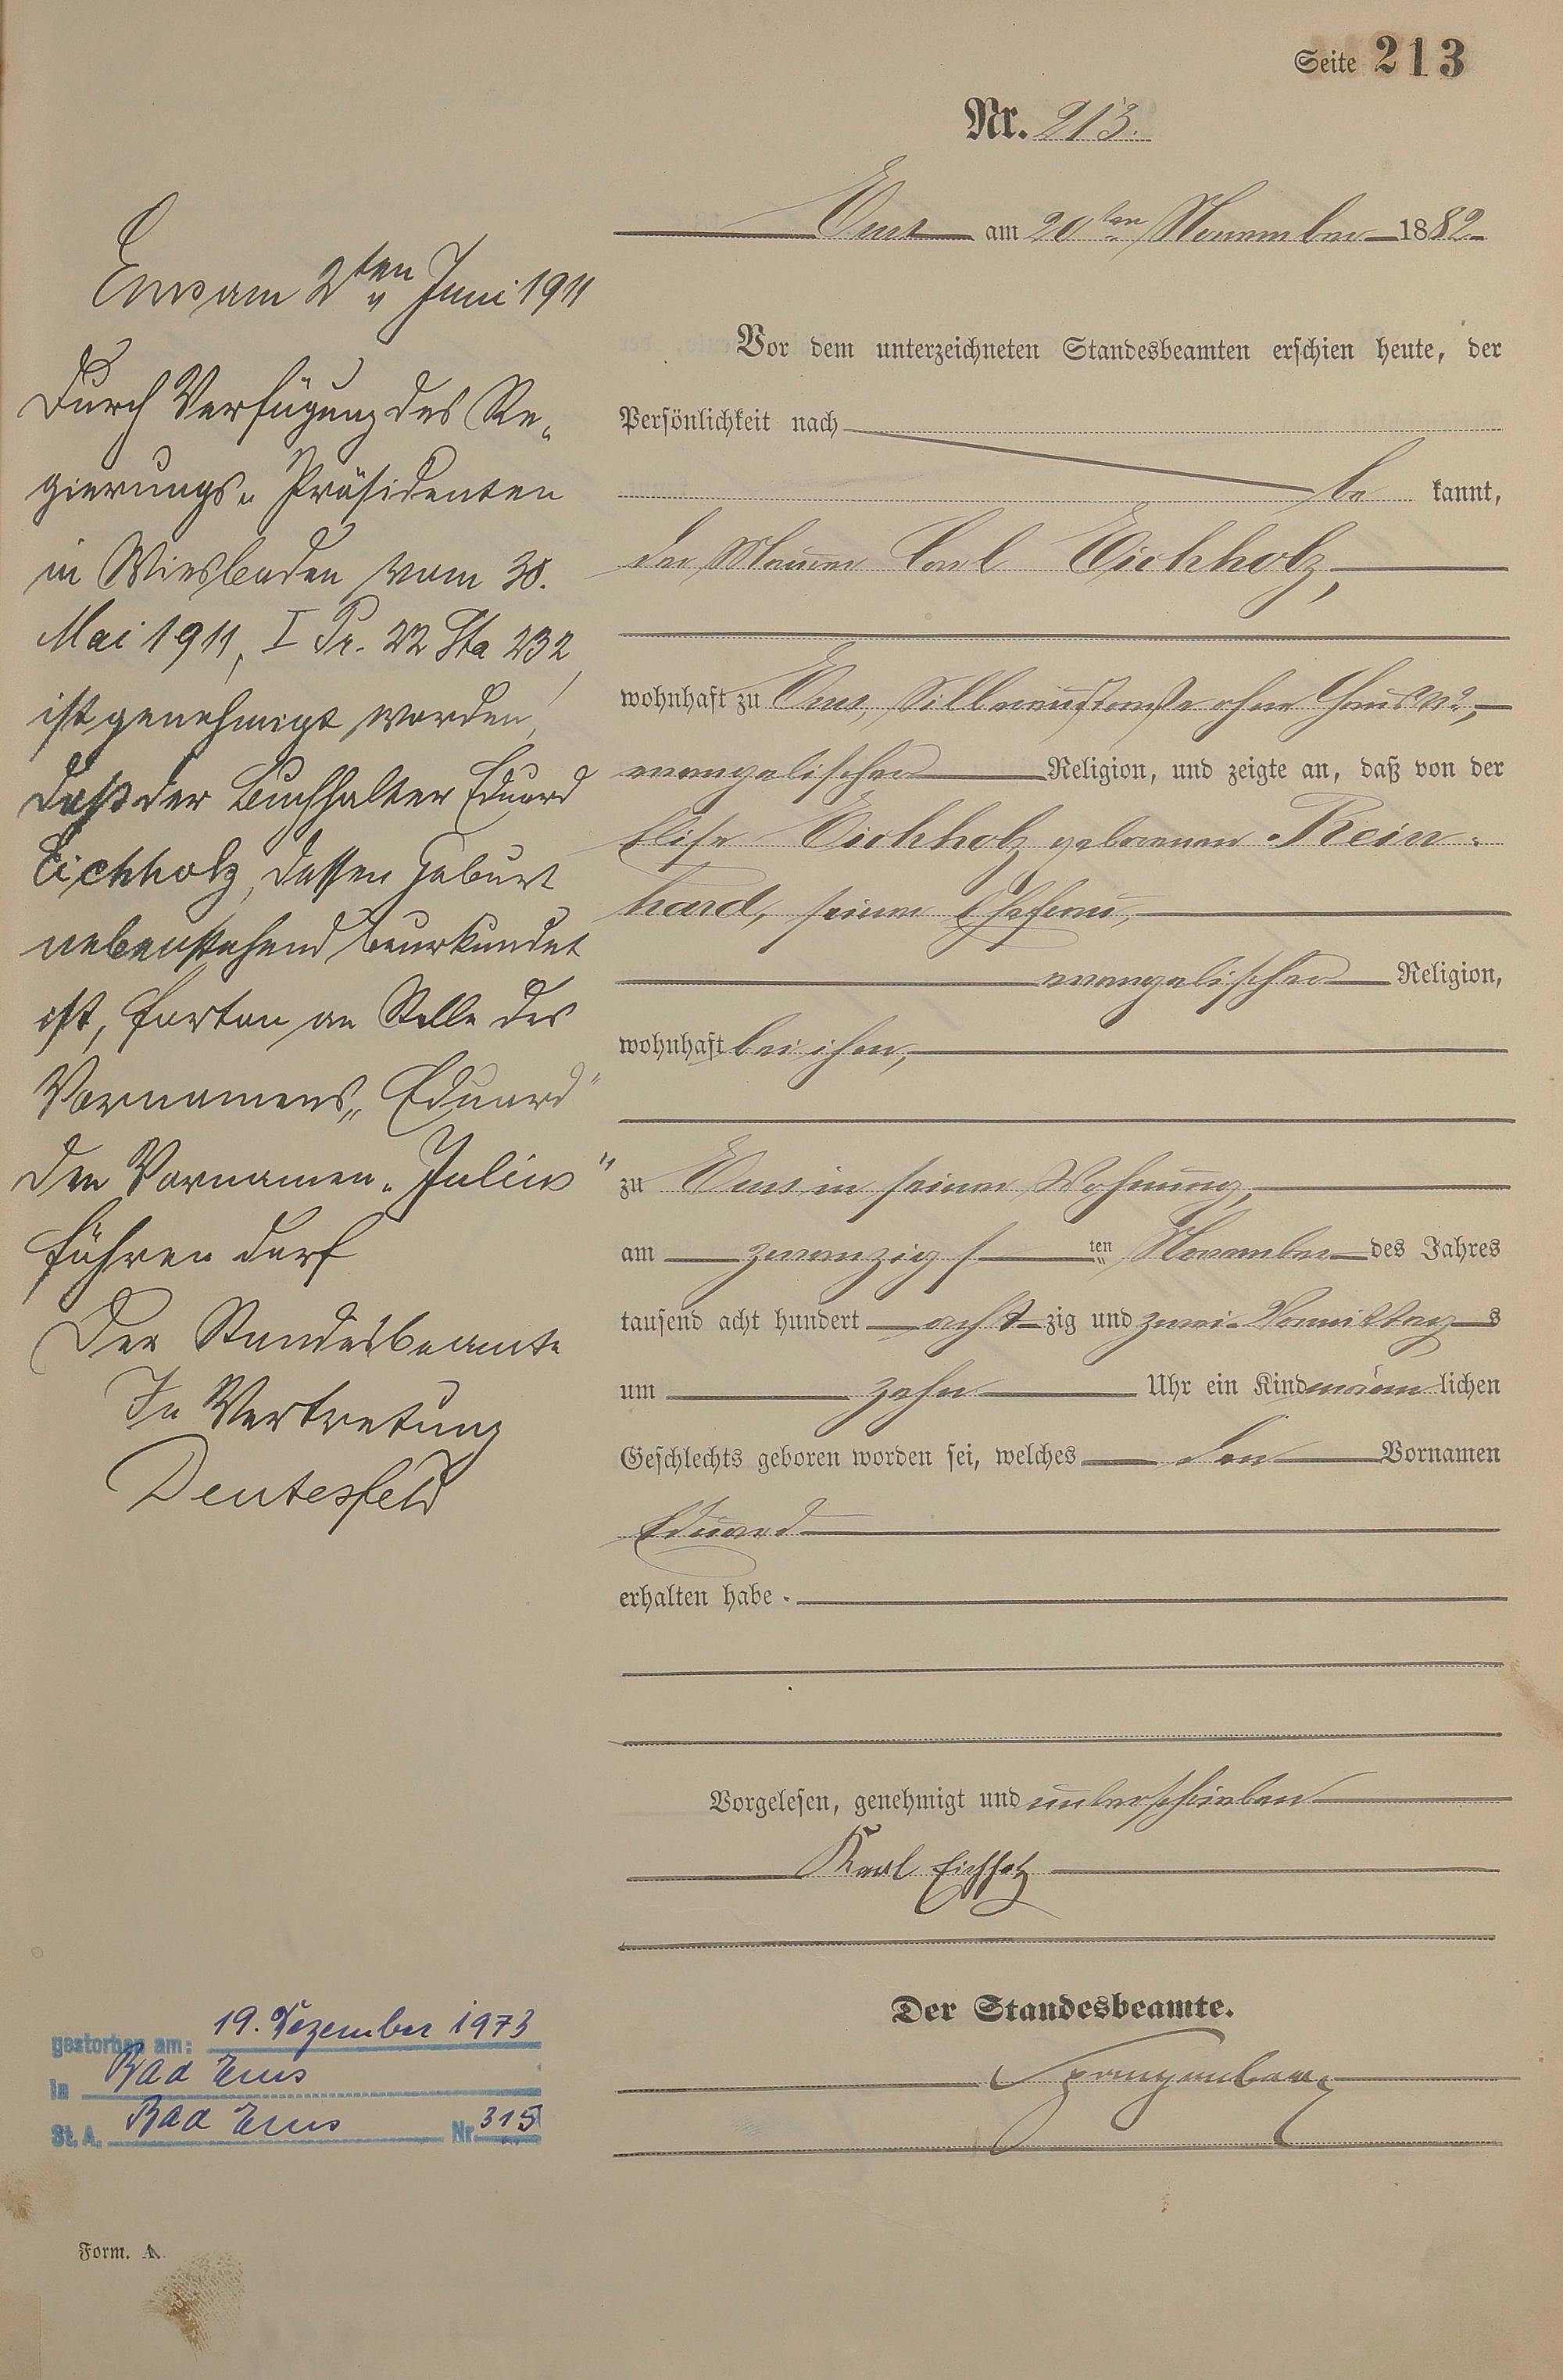 Seite 213
Nr. 213.
Ems am 20ten November 1882
Vor dem unterzeichneten Standesbeamten erschien heute, der
Persönlichkeit nach
be kannt,
der Maurer Carl Eichholz,
wohnhaft zu Ems, ohne Haus No,
evangelischer Religion, und zeigte an, daß von der
Elise Eichholz geborenen Rein-
hard, seiner Ehefrau,
evangelischer Religion,
wohnhaft bei ihm,
zu Ems in seiner Wohnung,
am zwanzigsten November des Jahres
tausend acht hundert achtzig und zwei Vormittags
um zehn Uhr ein Kind männlichen
Geschlechts geboren worden sei, welches den Vornamen
Eduard
erhalten habe.
Vorgelesen, genehmigt und unterschrieben
Karl Eichholz
Der Standesbeamte.
Spangenberg
Ems am 2ten Juni 1911
Durch Verfügung des Re-
gierungs-Präsidenten
in Wiesbaden vom 30.
Mai 1911, I Pr. 22 Sta 232,
ist genehmigt worden,
daß der Buchhalter Eduard
Eichholz, dessen Geburt
nebenstehend beurkundet
ist, fortan an Stelle des
Vornamens „Eduard"
den Vornamen „Julius"
führen darf
Der Standesbeamte
In Vertretung
Deutesfeld
gestorben am: 19. Dezember 1973
in Bad Ems
St. A. Bad Ems Nr. 315
Form. A.